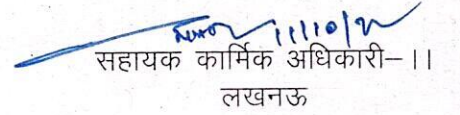 11/10/
सहायक कार्मिक अधिकारी–।।
लखनऊ